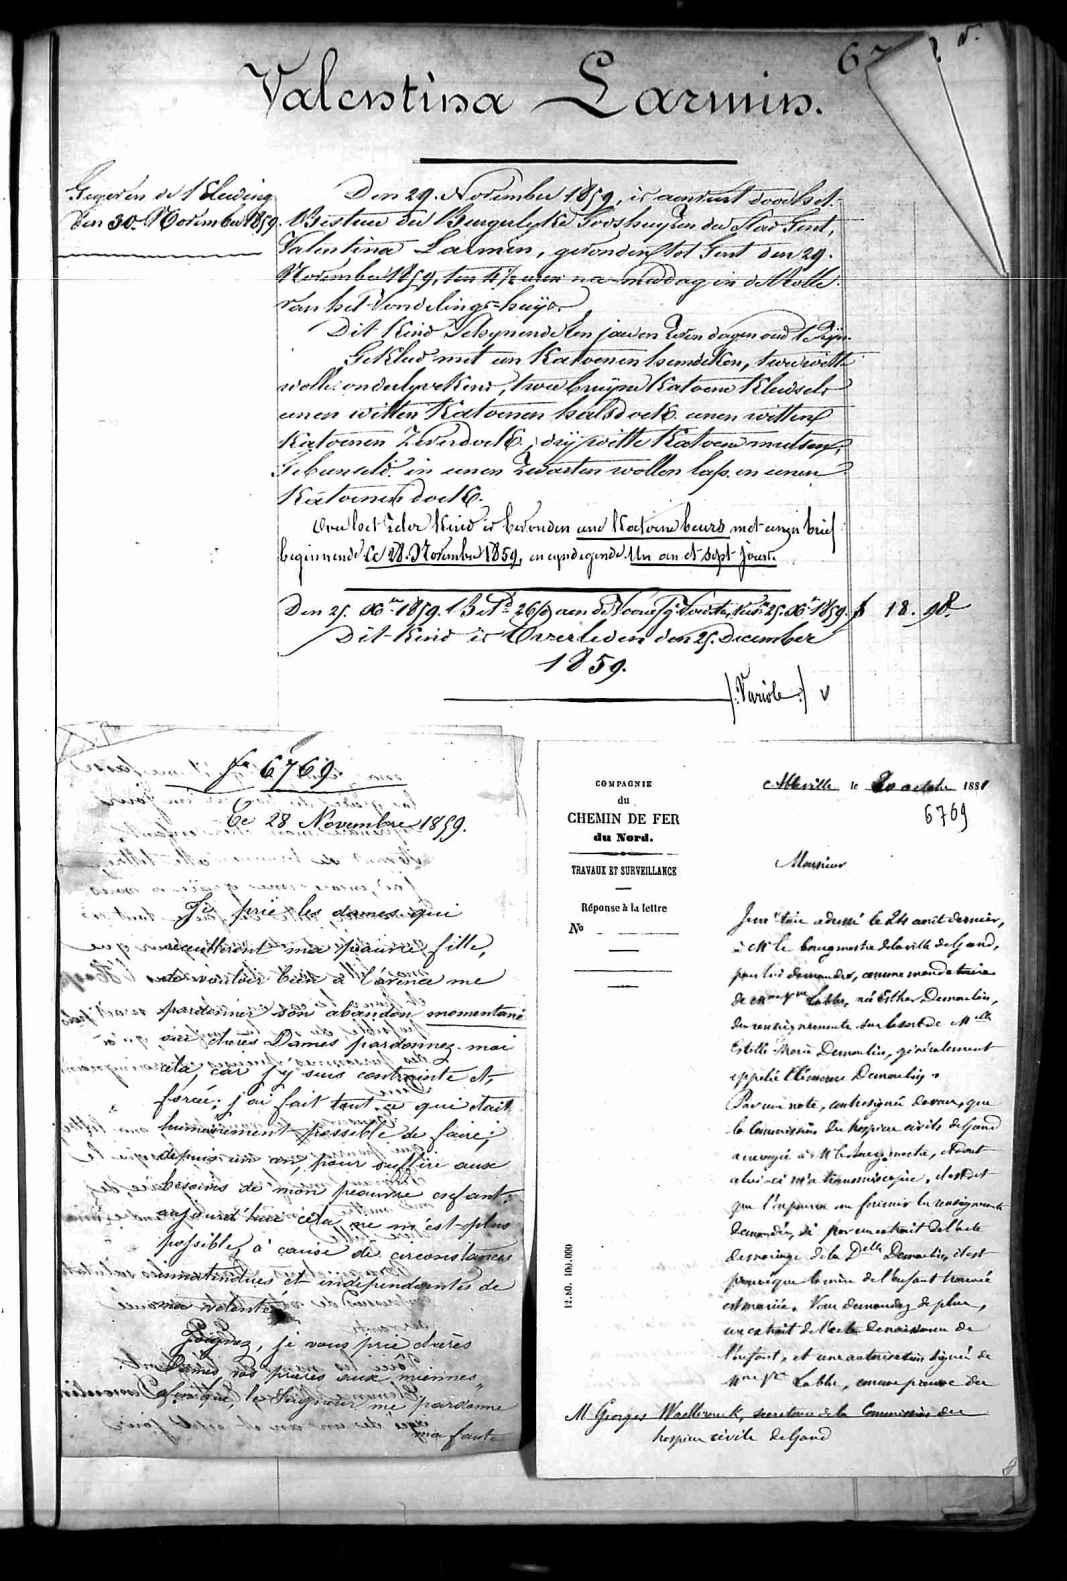 67
Valentina Larmin.
Gegeven de 1 Kleeding
den 30 November 1859.
Den 29. November 1859, is aenveird door het
Bestuer der Burgerlyke Godshuyzen der Stad Gent,
Valentina Larmin, gevonden tot Gent den 29.
November 1859, ten 4 1/2 uren na-middag in de Rolle
van het Vondelings-huys.
Dit Kind schynende een jaer en zeven dagen oud te zyn
Gekleed met een Katoenen hemdeken, twee witte
wolle onderlyvekens, twee bruyne Katoene Kleedsels
eenen witten Katoenen halsdoek eenen witten
Katoenen Zeverdoek, dry witte Katoene mutsen,
Gebunseld in eenen Zwarten wollen lap en eenen
Katoenen doek.
Over het zelve Kind is bevonden eene Katoene beurs met eenen brief
beginnende Ce 28. Novembre 1859, en eyndigende Un an et sept jours.
Den 25. Xber 1859. Bet. 26 aen de Voedster 25. Xber 1859. f 18. 98.
Dit Kind is Overleden den 25. December
1859.
/: Variole :/ v
fo 6769
Ce 28 Novembre 1859.
Je prie les dames qui
recueilleront ma pauvre fille,
de vouloir bien à l'avance me
pardonner son abandon momentané
oui chères Dames pardonnez-moi
cela, car j'y suis contrainte et
forcée; j'ai fait tout ce qui était
humainement possible de faire;
depuis un an, pour suffire aux
besoins de mon pauvre enfant;
aujourd'hui cela ne m'est plus
possible, à cause de circonstances
inattendues et indépendantes de
ma volonté.
Joignez, je vous prie chères
Dames, vos prières aux miennes
afin que le Seigneur me pardonne
ma faute
COMPAGNIE
du
CHEMIN DE FER
du Nord.
TRAVAUX ET SURVEILLANCE
Réponse à la lettre
No
12.80. 100.000
Abbeville le 20 octobre 1881
6769
Monsieur
Je m'étais adressé le 24 août dernier,
à Mr le bourgmestre de la ville de Gand,
pour lui demander, comme mandataire
de Mme Vve Labbe, née Esther Demoulin,
des renseignements sur le sort de Melle
Estelle Marie Demoulin, généralement
appelée Clémence Demoulin.
Par une note, contresignée de vous, que
la Commission des hospices civils de Gand
a envoyée à Mr le bourgmestre, et dont
celui-ci m'a transmis copie, il est dit
que l'on pourra me fournir les renseignements
demandés, si par un extrait de l'acte
de mariage de la Delle Demoulin, il est
prouvé que la mère de l'enfant trouvée
est mariée. Vous demandez de plus,
un extrait de l'acte de naissance de
l'enfant, et une autorisation signée de
Mme Vve Labbe, comme preuve du
Mr Georges Waelbrouck, secrétaire de la Commission des
hospices civils de Gand